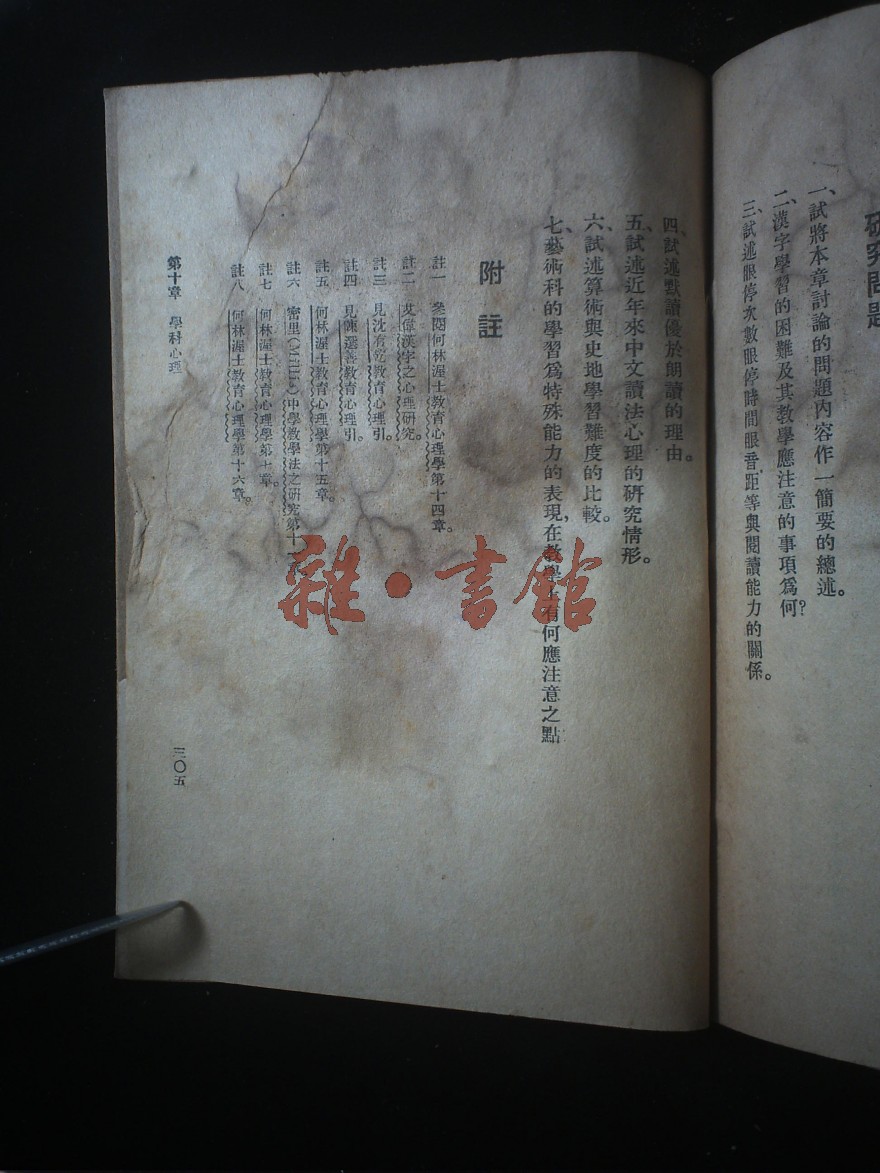 研究問題
一、試將本章討論的問題內容作一簡要的總述。
二、漢字學習的困難及其教學應注意的事項爲何？
三、試述眼停次數眼停時間眼音距等與閱讀能力的關係。
四、試述默讀優於朗讀的理由。
五、試述近年來中文讀法心理的研究情形。
六、試述算術與史地學習難度的比較。
七、藝術科的學習爲特殊能力的表現，在教學上有何應注意之點
附註
註一 參閱何林渥士教育心理學第十四章。
註二 艾偉漢字之心理研究。
註三 見沈有乾教育心理引。
註四 見陳選善教育心理引。
註五 何林渥士教育心理學第十五章。
註六 密里（Miller）中學教學法之研究第十一
註七 何林渥士教育心理學第十章。
註八 何林渥士教育心理學第十六章。
第十章 學科心理
三〇五
雜·書館